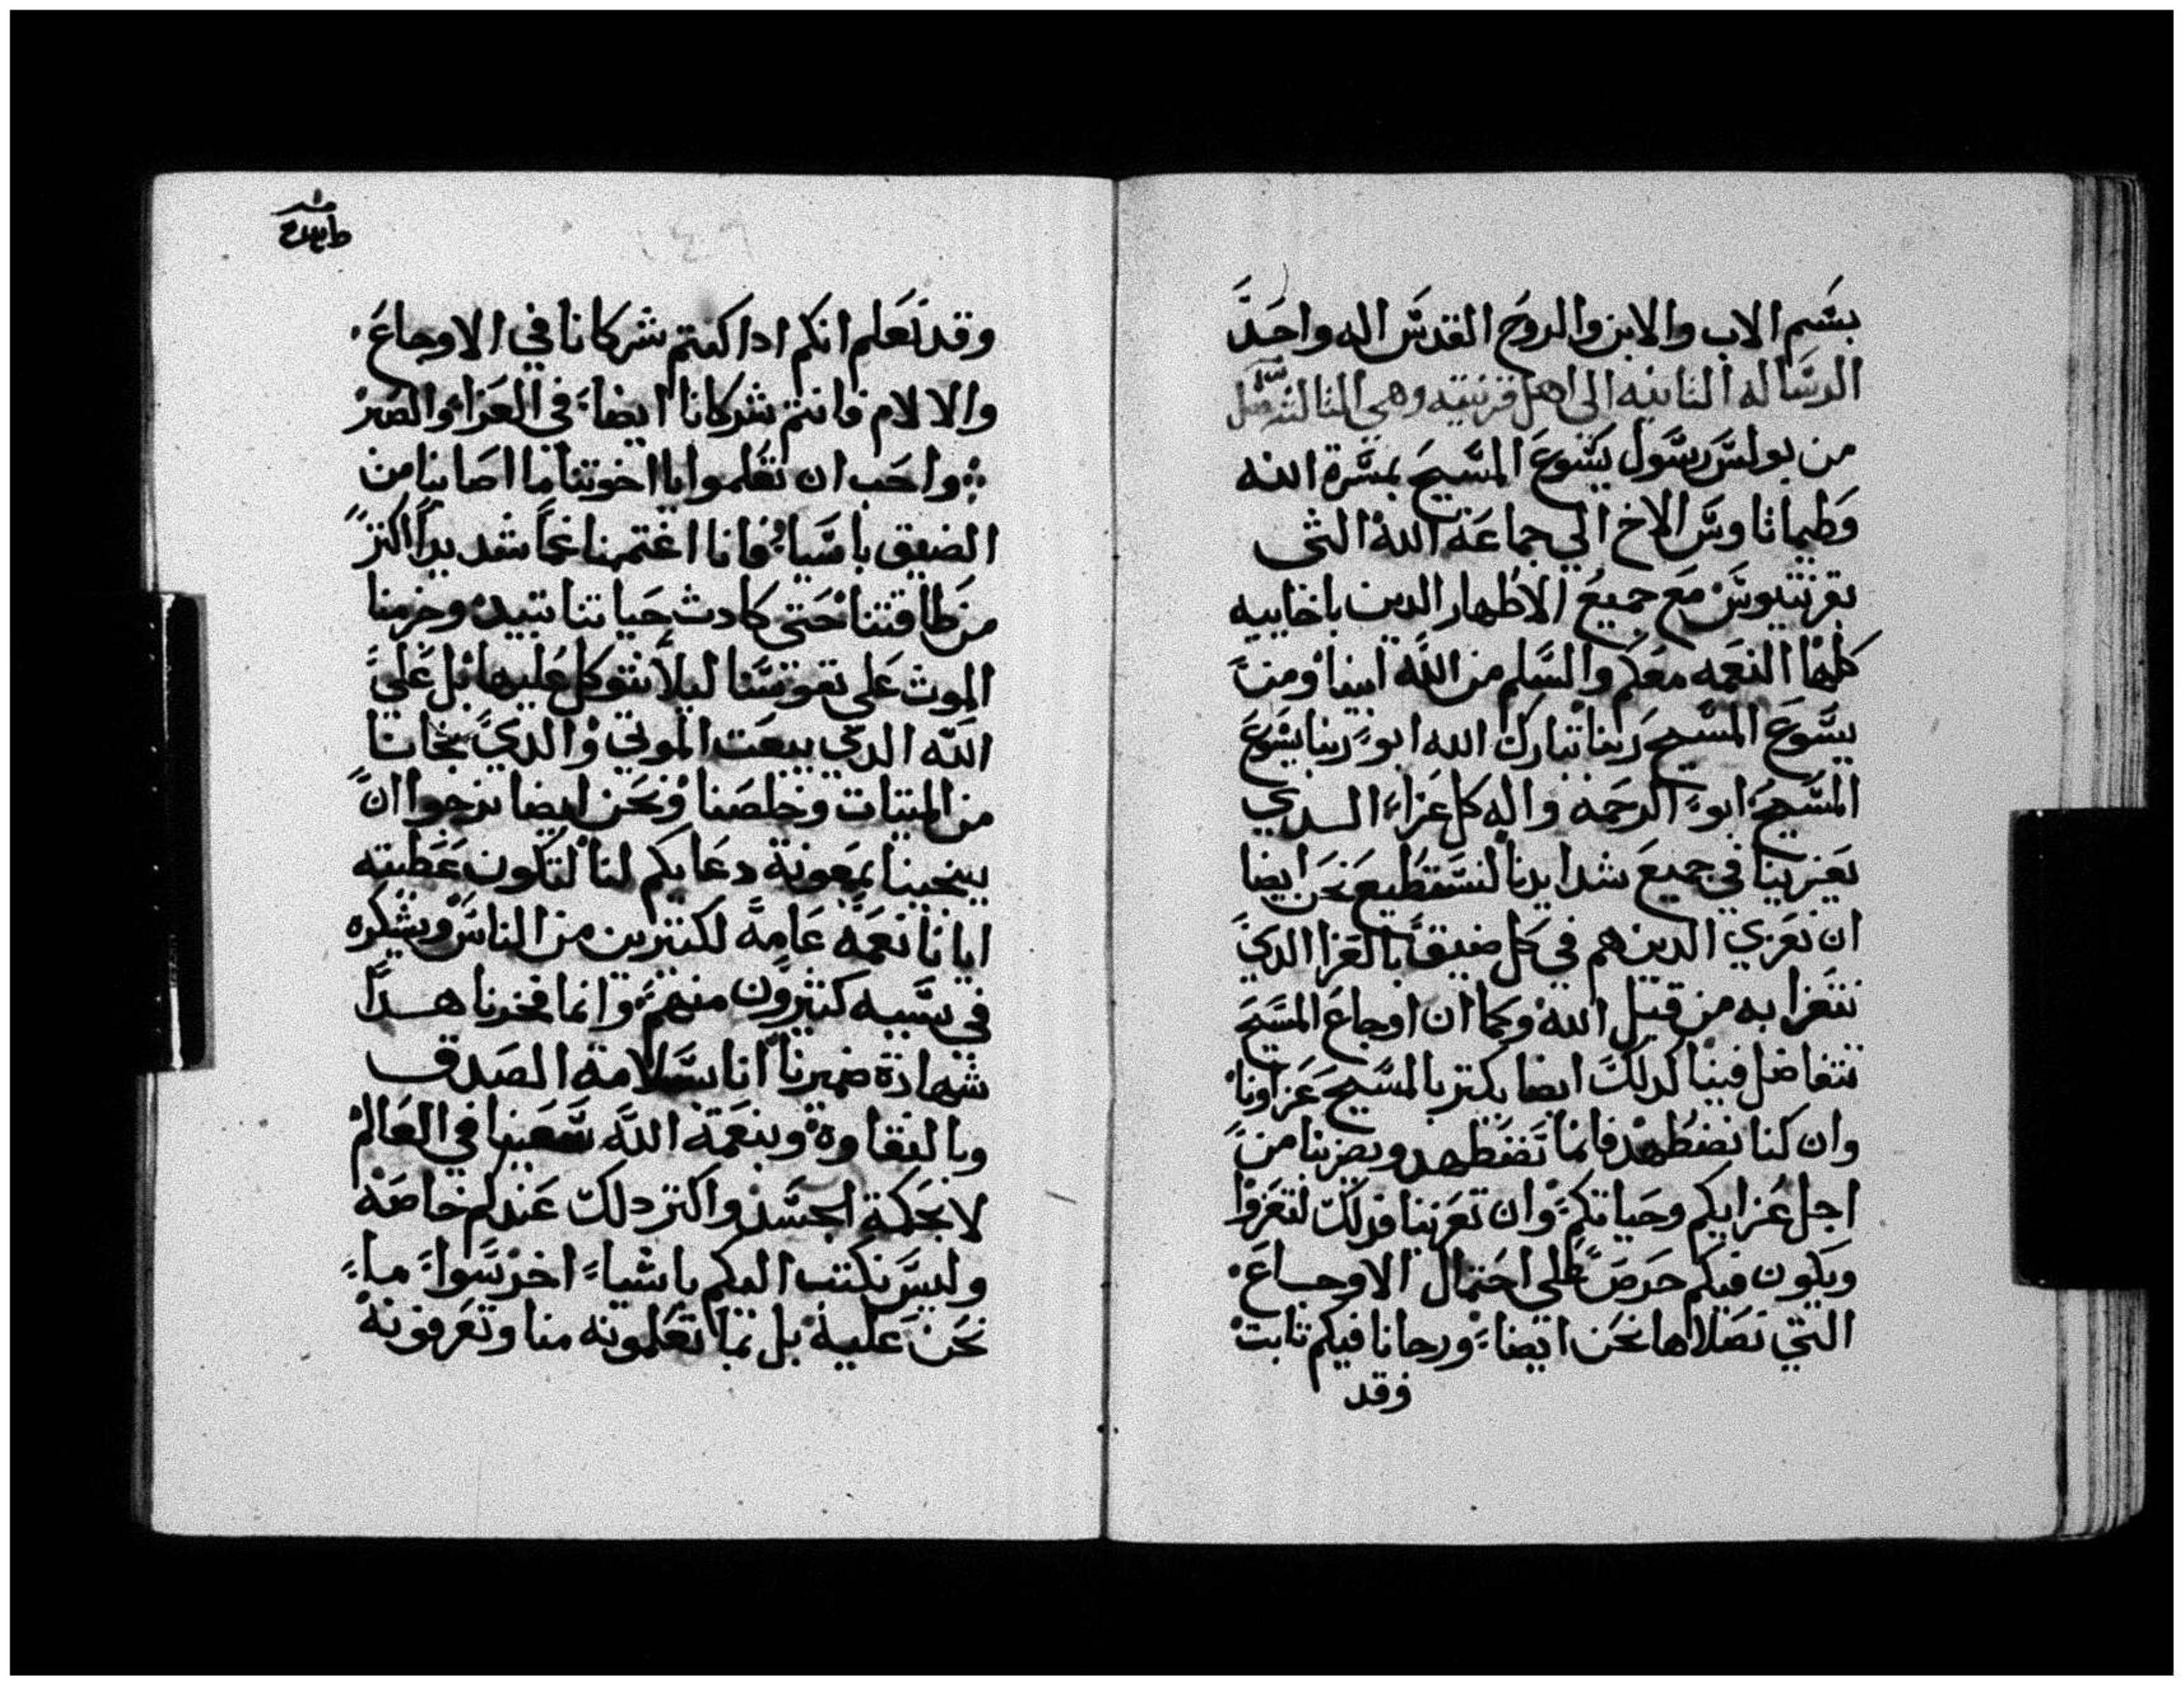 بسم الاب والابن والروح القدس اله واحد
الرساله الثانيه الى اهل قرنتيه وهي الثالثه
من بولس رسول يسوع المسيح بمسرة الله
وطيماثاوس الاخ الي جماعة الله التي
بقرنتيوس مع جميع الاطهار الدين باخاييه
كلها النعمه معكم والسلم من الله ابينا ومن
يسوع المسيح ربنا تبارك الله ابو ربنا يسوع
المسيح ابو الرحمه واله كل عزاء الدي
يعزينا في جميع شدايدنا لنستطيع نحن ايضا
ان نعزي الدين هم في كل ضيق بالعزا الدي
نتعزا به من قبل الله وكما ان اوجاع المسيح
تتفاضل فينا كدلك ايضا يكثر بالمسيح عزاونا
وان كنا نضطهد فانما نضطهد ويضربنا من
اجل عزايكم وحياتكم وان تعزينا فدلك لتعزوا
ويكون فيكم حرص علي احتمال الاوجاع
التي نصلاها نحن ايضا ورجانا فيكم ثابت
وقد
وقد نعلم انكم ادا كنتم شركانا في الاوجاع
والالام فانتم شركانا ايضا في العزا والصبر
واحب ان تعلموا يا اخوتنا ما اصابنا من
الضيق باسيا فانا اغتممنا غما شديدا اكثر
من طاقتنا حتى كادت حياتنا تبيد وجزمنا
الموت علي نفوسنا ليلا نتوكل عليها بل علي
الله الدي يبعت الموتي والدي نجانا
من الميتات وخلصنا ونحن ايضا نرجوا ان
ينجينا بمعونة دعايكم لنا لتكون عطيته
ايانا نعمه عامه لكثيرين من الناس ويشكره
في سببه كثيرون منهم وانما فخرنا هدا
شهادة ضميرنا انا بسلامة الصدق
وبالنقاوة وبنعمة الله سعينا في العالم
لا بحكمة الجسد واكثر دلك عندكم خاصه
وليس نكتب اليكم باشياء اخر سوا ما
نحن عليه بل بما تعلمونه منا وتعرفونه